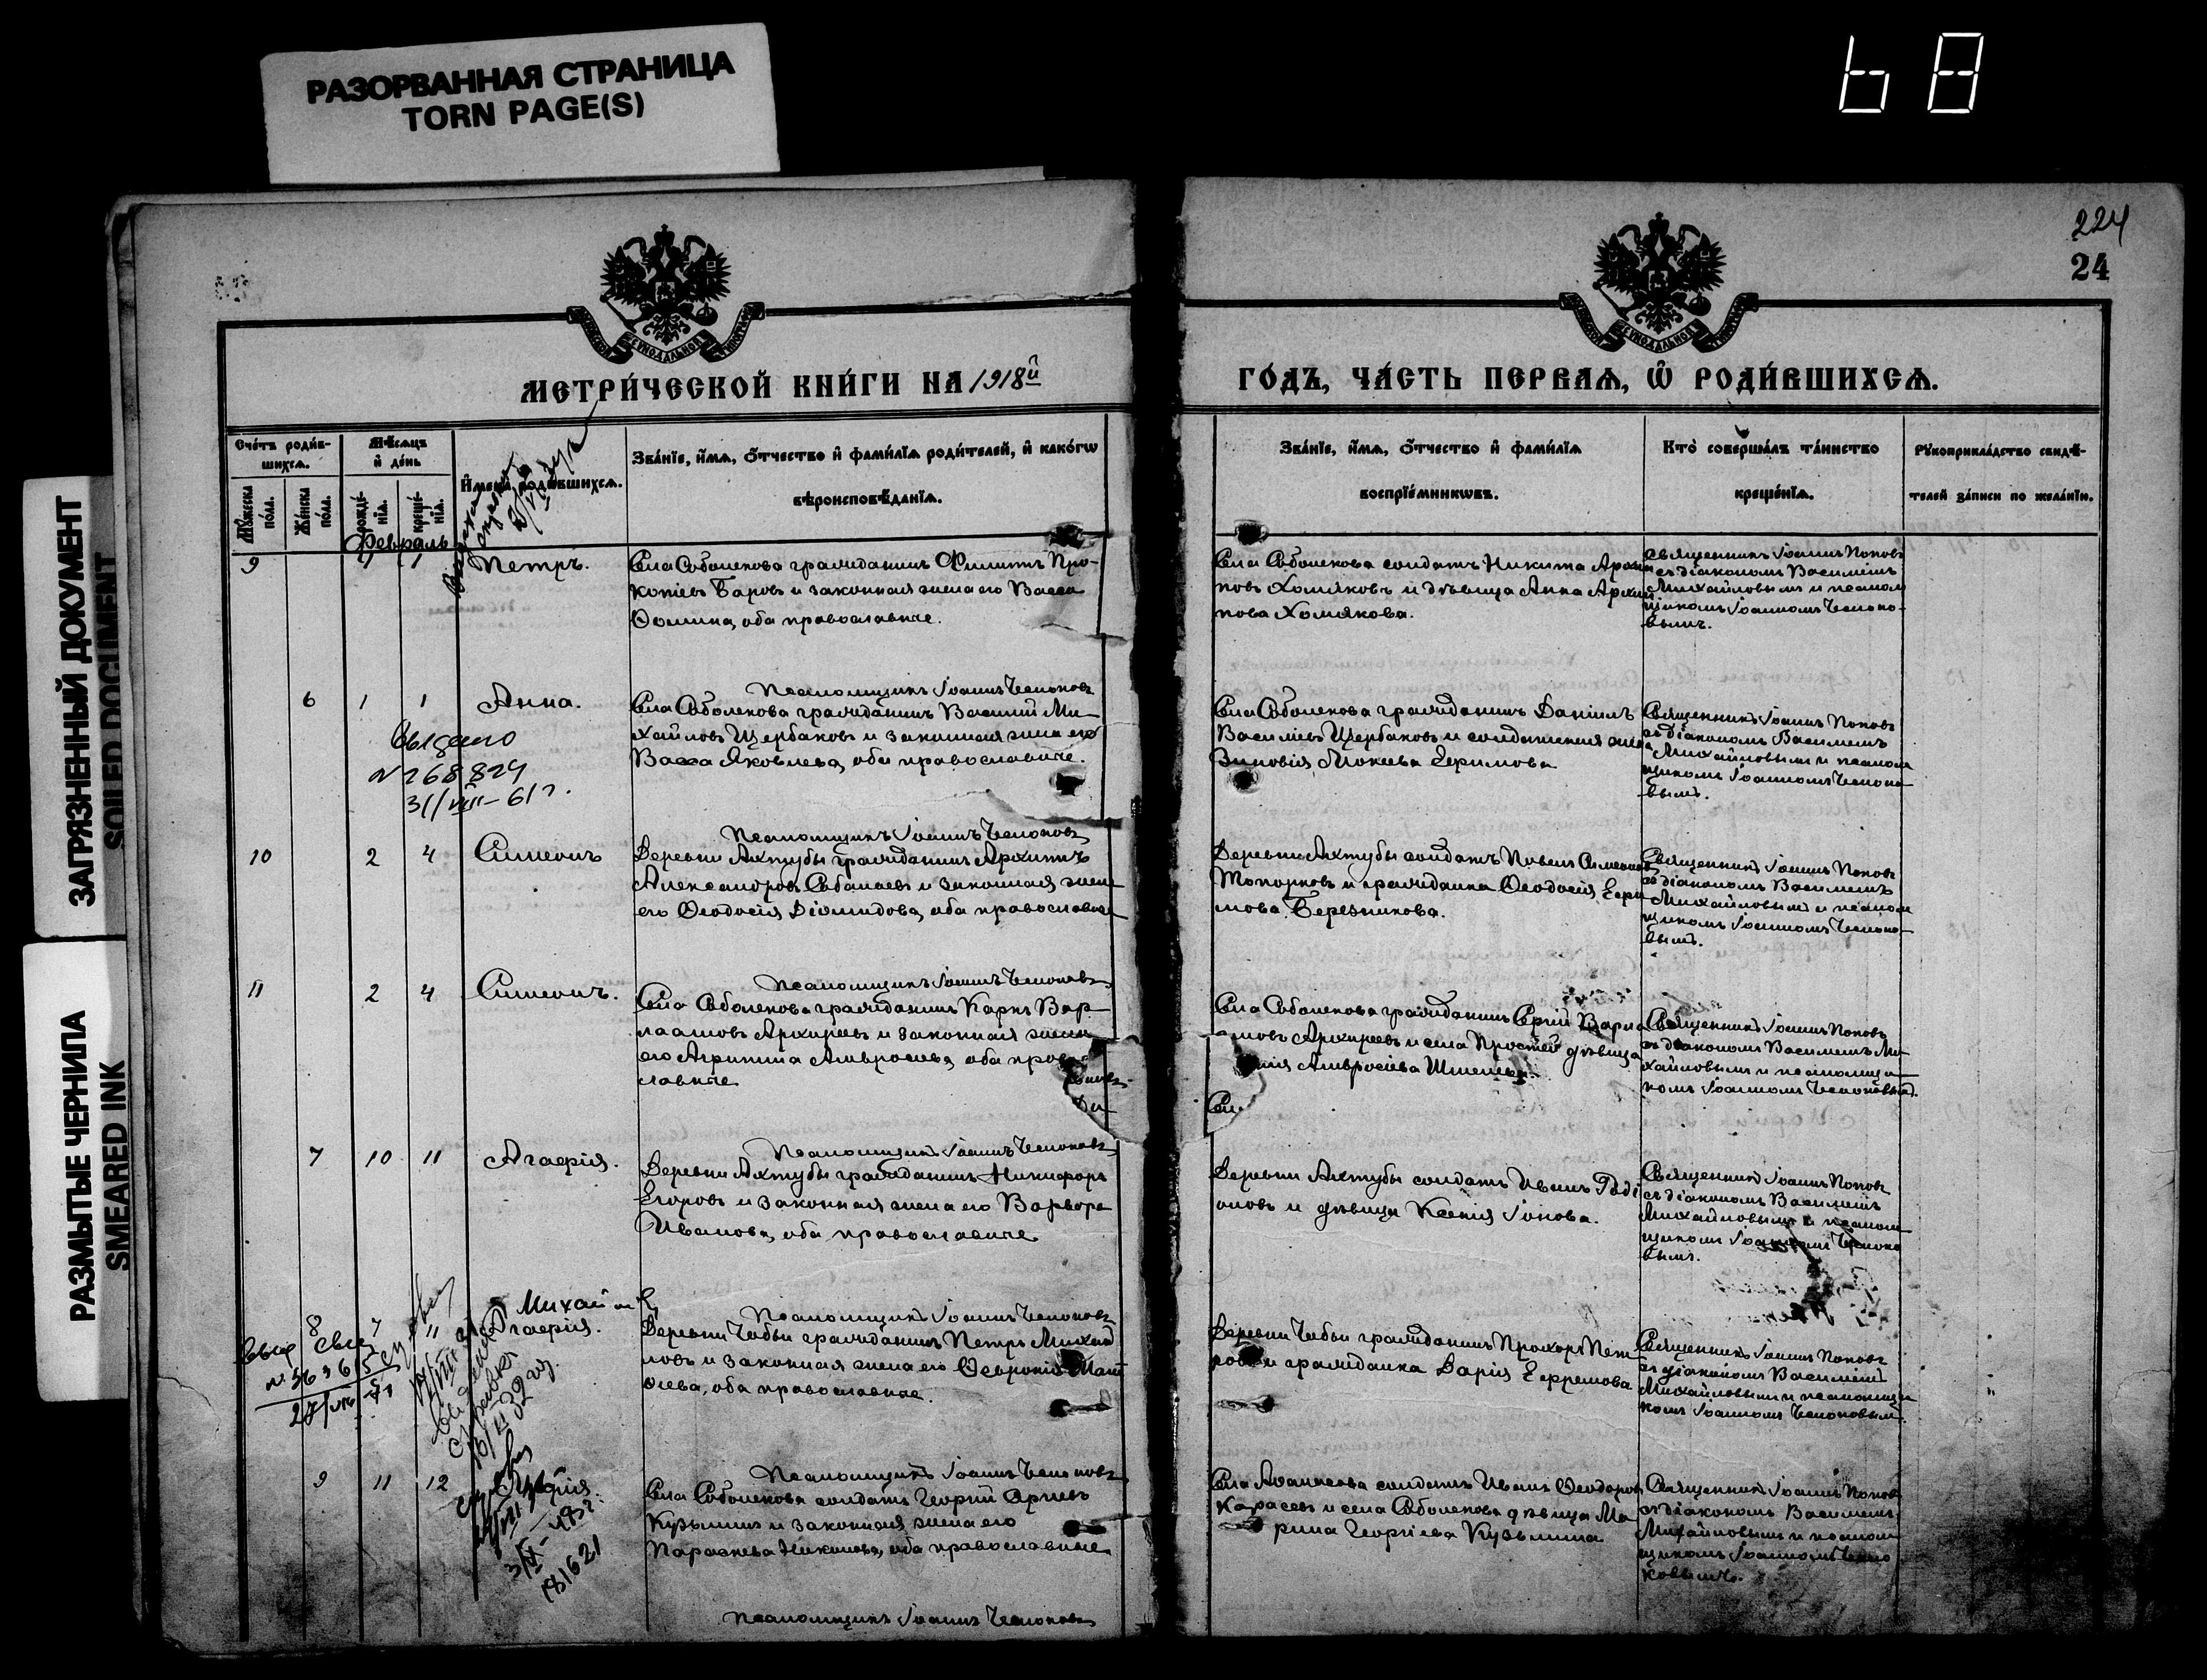 РАЗОРВАННАЯ СТРАНИЦА
TORN PAGE(S)
ЗАГРЯЗНЕННЫЙ ДОКУМЕНТ
SOILED DOCUMENT
РАЗМЫТЫЕ ЧЕРНИЛА
SMEARED INK
224
24
МЕТРИ́ЧЕСКОЙ КНИ́ГИ НА 1918й
ГО́ДЪ, ЧА́СТЬ ПЕРВАЯ, Ѡ РОДИ́ВШИХСЯ.
Сче́тъ роди́в-
шихся.
Му́жеска по́ла.
Же́нска по́ла.
Мѣ́сяцъ
и де́нь
рожде́-
нїя.
креще́-
нїя.
Имена родившихся.
Зва́нїе, и́мя, о́тчество и фами́лїя роди́телей, и како́гѡ
вѣроисповѣ́данїя.
Зва́нїе, и́мя, о́тчество и фами́лїя
воспрїе́мникѡвъ.
Кто̀ соверша́лъ та́инство
креще́нїя.
Рꙋкоприкла́дство свидѣ́-
телей за́писи по жела́нїю.
Февраль
9
1
1
Петръ.
Села Соболекова гражданинъ Филиппъ Про-
копіевъ Баровъ и законная жена его Васса
Ѳомина, оба православные.
Села Соболекова солдатъ Никита Архип
повъ Хомяковъ и дѣвица Анна Архип
пова Хомякова.
Священникъ Іоаннъ Поповъ
съ діакономъ Василіемъ
Михайловымъ и псалом
щикомъ Іоанномъ Чепоко-
вымъ.
Псаломщикъ Іоаннъ Чепоковъ
6
1
1
Анна.
Выдано
N 268824
31/VIII-61 г.
Села Соболекова гражданинъ Василій Ми-
хайловъ Щербаковъ и законная жена его
Васса Яковлева, оба православные.
Села Соболекова гражданинъ Даніилъ
Василіевъ Щербаковъ и солдатская жена
Зиновія Мокеева Ефимова
Священникъ Іоаннъ Поповъ
съ діакономъ Василіемъ
Михайловымъ и псалом
щикомъ Іоанномъ Чепоко-
вымъ.
Псаломщикъ Іоаннъ Чепоковъ
10
2
4
Симеонъ
Деревни Ахтубы гражданинъ Архиппъ
Александровъ Сабанаевъ и законная жена
его Ѳеодосія Діомидова, оба православные
Деревни Ахтубы солдатъ Павелъ Симеоновъ
Топорковъ и гражданка Ѳеодосія Ефи
мова Березникова.
Священникъ Іоаннъ Поповъ
съ діакономъ Василіемъ
Михайловымъ и псалом
щикомъ Іоанномъ Чепоко-
вымъ.
Псаломщикъ Іоаннъ Чепоковъ
11
2
4
Симеонъ.
Села Соболекова гражданинъ Карпъ Вар-
лаамовъ Архиреевъ и законная жена
его Агрипина Амвросіева, оба право
славные
Села Соболекова гражданинъ Сергій Варла
амовъ Архиреевъ и села Простей дѣвица
Амвросіева
Священникъ Іоаннъ Поповъ
съ діакономъ Василіемъ Ми-
хайловымъ и псаломщи-
комъ Іоанномъ Чепоковымъ.
Псаломщикъ Іоаннъ Чепоковъ
7
10
11
Агафія.
Деревни Ахтубы гражданинъ Никифоръ
Егоровъ и законная жена его Варвара
Иванова, оба православные
Деревни Ахтубы солдатъ Иванъ Роді
оновъ и дѣвица Ксенія Іонова.
Священникъ Іоаннъ Поповъ
съ діакономъ Василіемъ
Михайловымъ и псалом
щикомъ Іоанномъ Чепоко
вымъ.
Псаломщикъ Іоаннъ Чепоковъ
8
7
11
Агафія.
Деревни Чабьи гражданинъ Петръ Михай
ловъ и законная жена его Ѳевронія Мат
ѳіева, оба православные.
Деревни Чабьи гражданинъ Прохоръ Пет
ровъ и гражданка Дарія Ефремова
Священникъ Іоаннъ Поповъ
съ діакономъ Василіемъ
Михайловымъ и псаломщи
комъ Іоанномъ Чепоковымъ.
N 363615
Псаломщикъ Іоаннъ Чепоковъ
9
11
12
Села Соболекова солдатъ Георгій
Кузьминъ и законная жена его
Параскева Никонова, оба православные
Села Аѳанасова солдатъ Иванъ Ѳеодоров
Карасевъ и села Соболекова дѣвица Ма
рина Георгіева Кузьмина
Священникъ Іоаннъ Поповъ
съ діакономъ Василіемъ
Михайловымъ и псалом
щикомъ Іоанномъ Чепо
ковымъ.
181621
Псаломщикъ Іоаннъ Чепоковъ